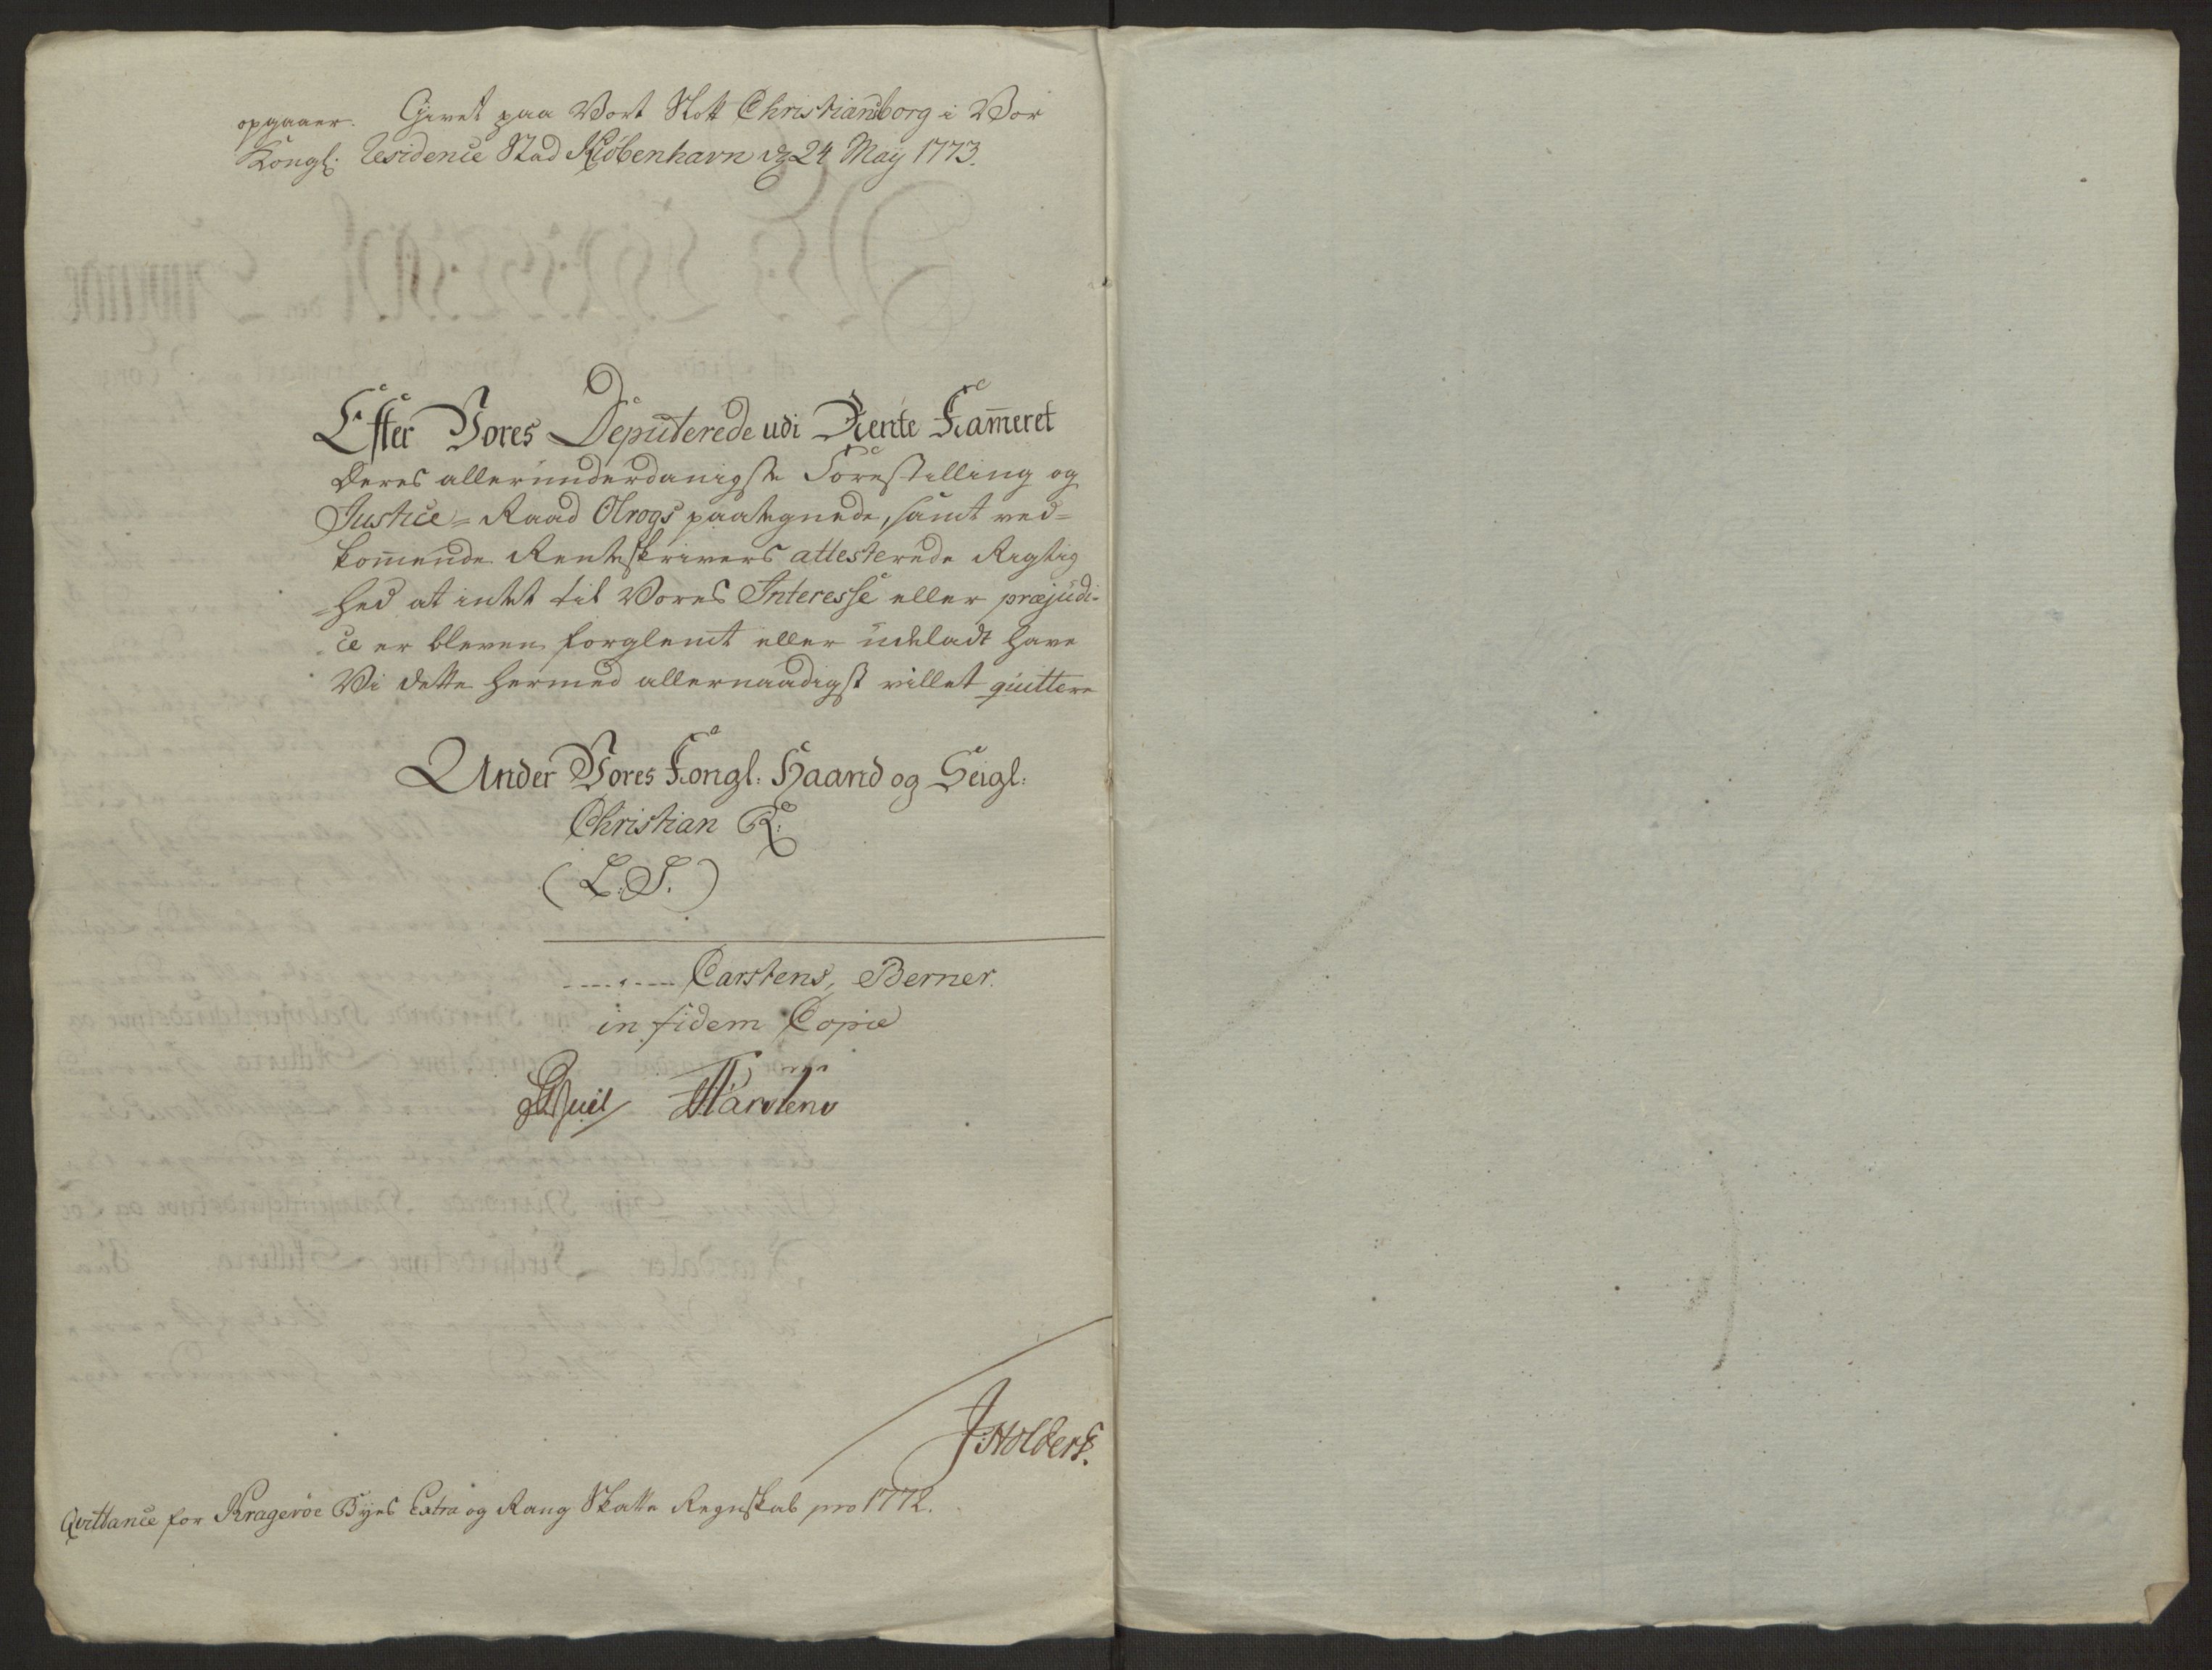 opgaaer. Givet paa Vort Slott Christiansborg i Vor
Kongl: Residence Stad Kiøbenhavn d: 24 May 1773.
Efter Vores Deputerede udi Rente Kam̄eret
Deres allerunderdanigste Forestilling og
Justice-Raad Olrogs paategnede, samt ved=
kom̄ende Renteskrivers attesterede Rigtig
=hed at intet til Vores Interesse eller præjudi-
ce er bleven forglemt eller udeladt have
Vi dette hermed allernaadigst villet quittere
Under Vores Kongl: Haand og Seigl:
Christian R:
(L:S.)
Carstens, Berner.
in fidem Copiæ
Martens
J. Holbers.
Qvittance for Kragerøe Byes Extra og Rang Skatte Regnskab pro 1772.